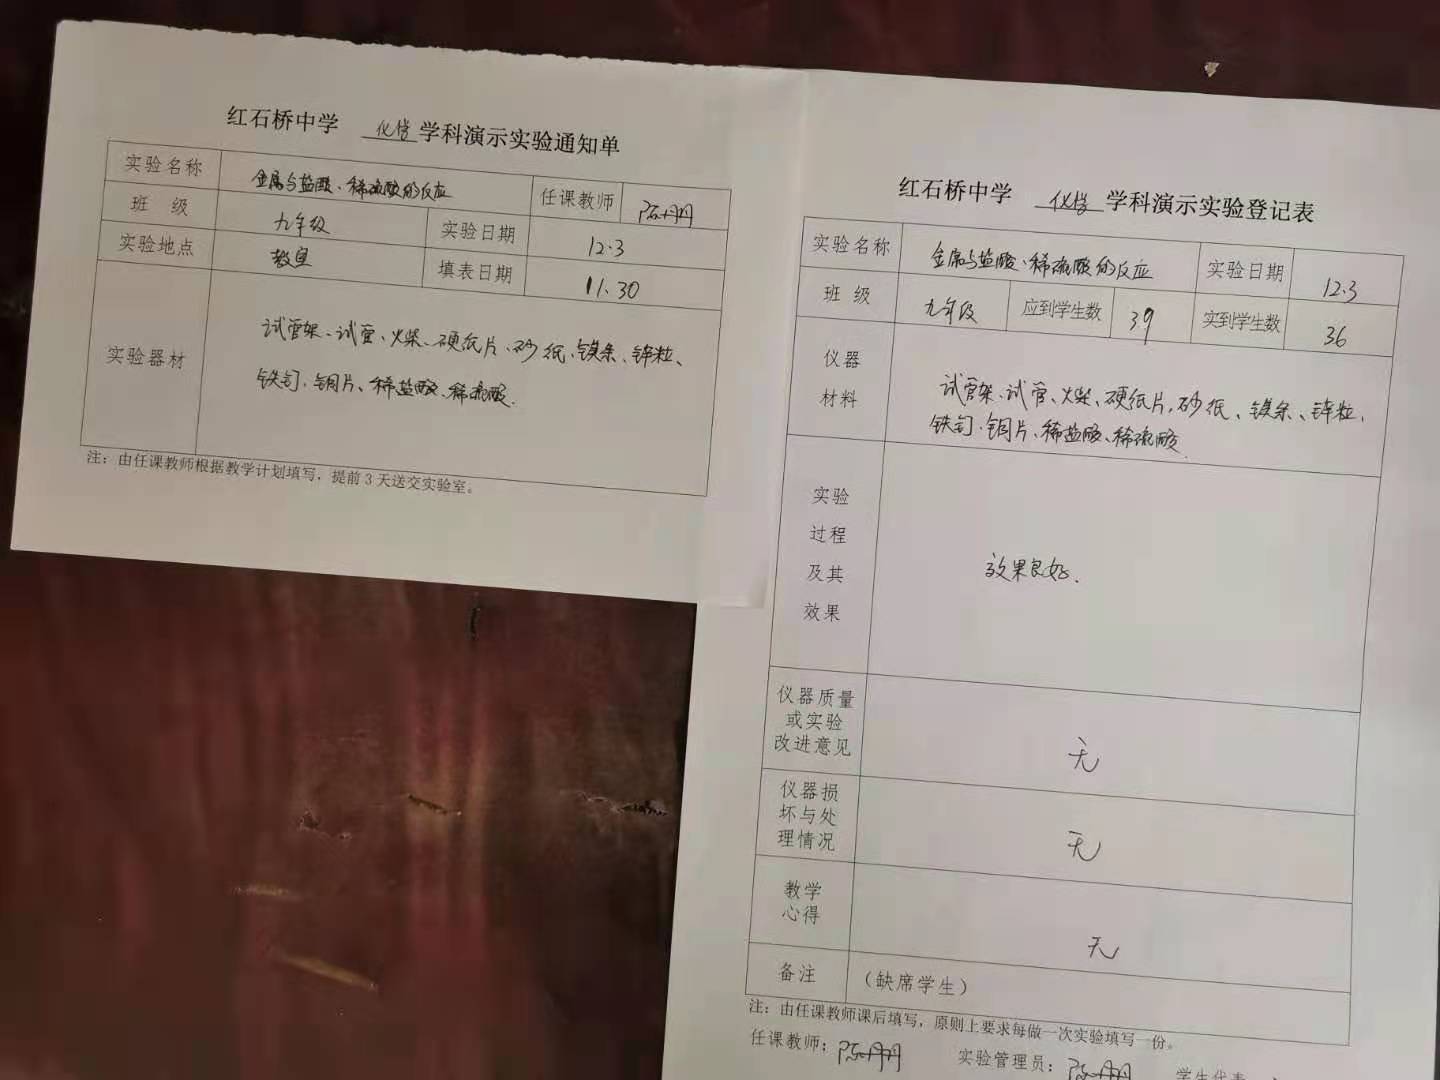 红石桥中学 化学 学科演示实验通知单
实验名称 金属与盐酸、稀硫酸的反应 任课教师 陈丹丹
班 级 九年级 实验日期 12.3
实验地点 教室 填表日期 11.30
实验器材
试管架、试管、火柴、硬纸片、砂纸、镁条、锌粒、
铁钉、铜片、稀盐酸、稀硫酸.
注：由任课教师根据教学计划填写，提前3天送交实验室。
红石桥中学 化学 学科演示实验登记表
实验名称 金属与盐酸、稀硫酸的反应 实验日期 12.3
班 级 九年级 应到学生数 39 实到学生数 36
仪器
材料
试管架、试管、火柴、硬纸片、砂纸、镁条、锌粒、
铁钉、铜片、稀盐酸、稀硫酸.
实验
过程
及其
效果
效果良好.
仪器质量
或实验
改进意见
无
仪器损
坏与处
理情况
无
教学
心得
无
备注 （缺席学生）
注：由任课教师课后填写，原则上要求每做一次实验填写一份。
任课教师：陈丹丹 实验管理员：陈丹丹 学生代表